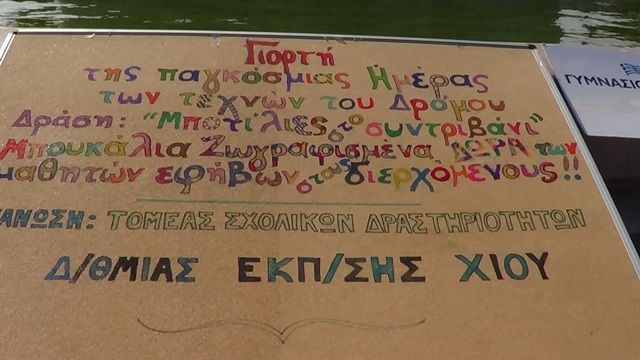 Γιορτή
της παγκόσμιας Ημέρας
των τεχνών του Δρόμου
Δράση: "Μποτίλιες στο συντριβάνι"
Μπουκάλια Ζωγραφισμένα, ΔΩΡΑ των
μαθητών εφήβων στους διερχόμενους!!
ΑΝΩΣΗ: ΤΟΜΕΑΣ ΣΧΟΛΙΚΩΝ ΔΡΑΣΤΗΡΙΟΤΗΤΩΝ
Δ/ΘΜΙΑΣ ΕΚΠ/ΣΗΣ ΧΙΟΥ
ΓΥΜΝΑΣΙΟ